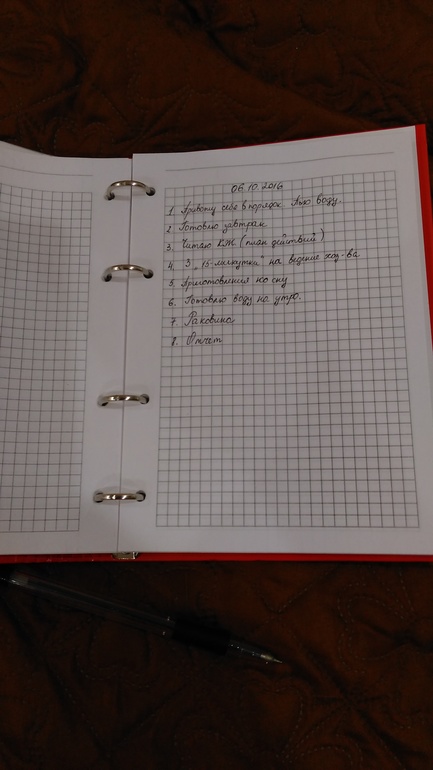 06.10.2016
1. Привожу себя в порядок. Пью воду.
2. Готовлю завтрак
3. Читаю КЖ (план действий)
4. 3 "15-минутки" на ведение хоз-ва
5. Приготовления ко сну
6. Готовлю воду на утро.
7. Раковина
8. Отчет